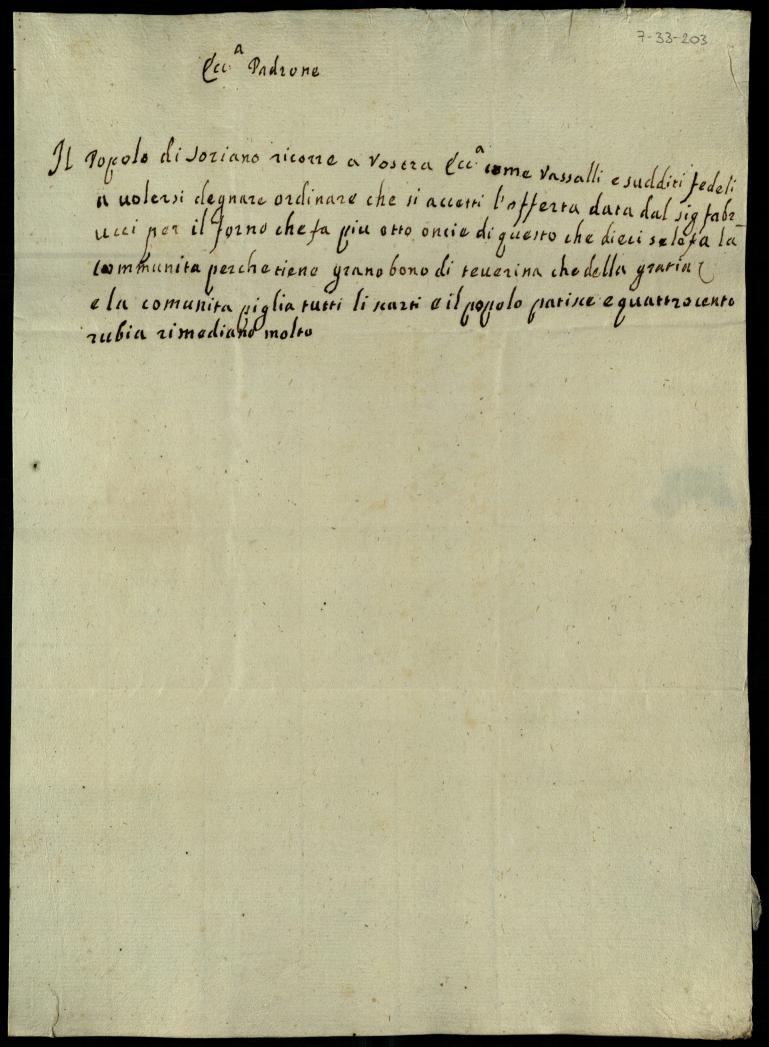 7-33-203
Ecc.a Padrone
Il Popolo di soriano ricorre a Vostra Ecc.a come Vassalli e sudditi fedeli
a uolersi degnare ordinare che si accetti l'offerta data dal sig fabr
ucci per il forno che fa piu otto oncie di questo che dieci se lo fa la
communita perche tiene grano bono di teuerina che della gratia
e la comunita piglia tutti li scarti e il popolo patisce e quattrocento
rubia rimediano molto